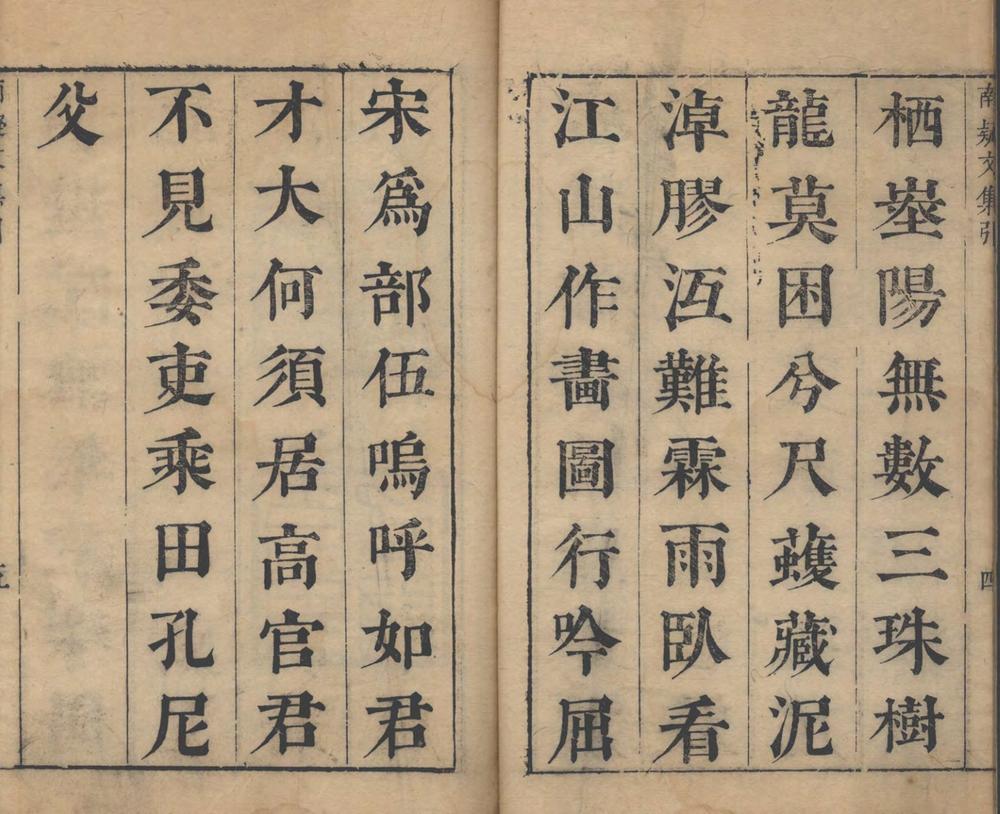 南疑文集引
四
栖嶧陽無數三珠樹
龍莫困兮尺蠖藏泥
淖膠沍難霖雨臥看
江山作畵圖行吟屈
宋爲部伍嗚呼如君
才大何須居高官君
不見委吏乘田孔尼
父